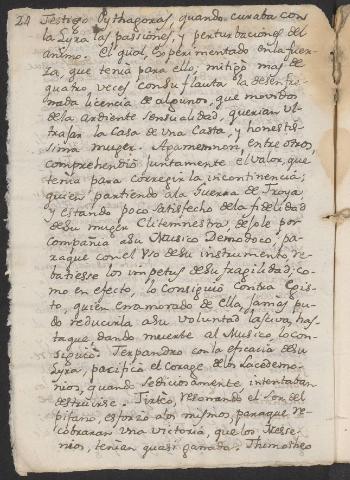 24 Testigo Pythagoras, quando curaba con
la Lyra las passiones, y perturbaciones del
animo. El qual, experimentado en la fuer-
za, que tenia para ello, mitigò mas de
quatro veces con su flauta la desenfre-
nada licencia de algunos, que movidos
de la ardiente sensualidad, querian ul-
trajar la Casa de una Casta, y honestis-
sima muger. Agamemnon, entre otros,
comprehendiò juntamente el valor, que
tenia para corregir la incontinencia;
quien partiendo a la Guerra de Troya,
y estando poco satisfecho de la fidelidad
de su muger Clitemnestra, dexole por
compañia a su Musico Demodoco, pa-
raque con el uso de su instrumento, re-
batiesse los impetus de su fragilidad; co-
mo en efecto, lo consiguiò contra Egis-
to, quien enamorado de ella, jamàs pu-
do reducirla a su voluntad lasciva, has-
taque, dando muerte al Musico, lo con-
siguiò. Terpandro con la eficacia de su
Lyra, pacificò el corage de los Lacedemo-
nios, quando sediciosamente intentaban
destruirse. Tirteo, resonando el son del
pifano, esforzò a los mismos, paraque re-
cobraran una victoria, que los Messe-
nios, tenian quasi ganada. Thimotheo